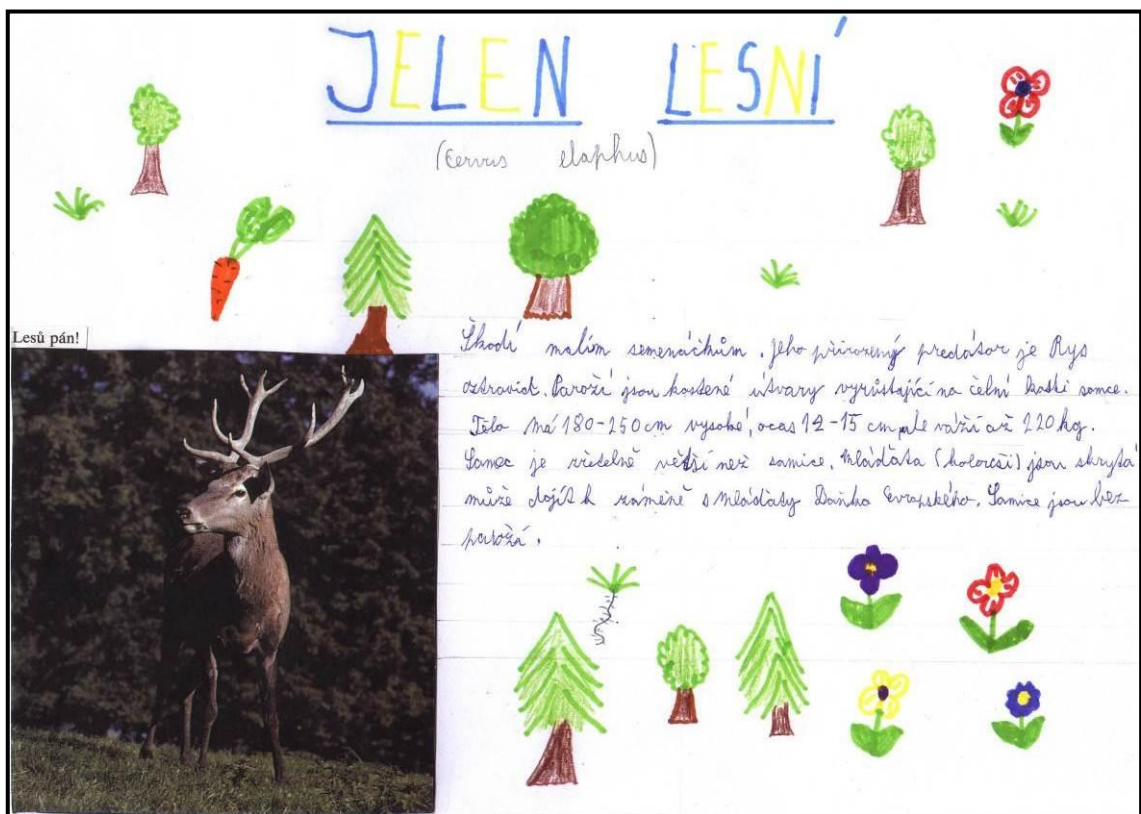 JELEN LESNÍ
(Cervus elaphus)
Lesů pán!
Škodí malím semenáčkům. Jeho přirozený predátor je Rys
ostravid. Paroží jsou kostené útvary vyrůstající na čelní kosti samce.
Tělo má 180-250 cm vysoké, ocas 12-15 cm, ale váží až 220 kg.
Samec je zřetelně větší než samice. Mláďata (kolouši) jsou skrytá
může dojít k záměně s mláďaty Daňka Evropského. Samice jsou bez
paroží.